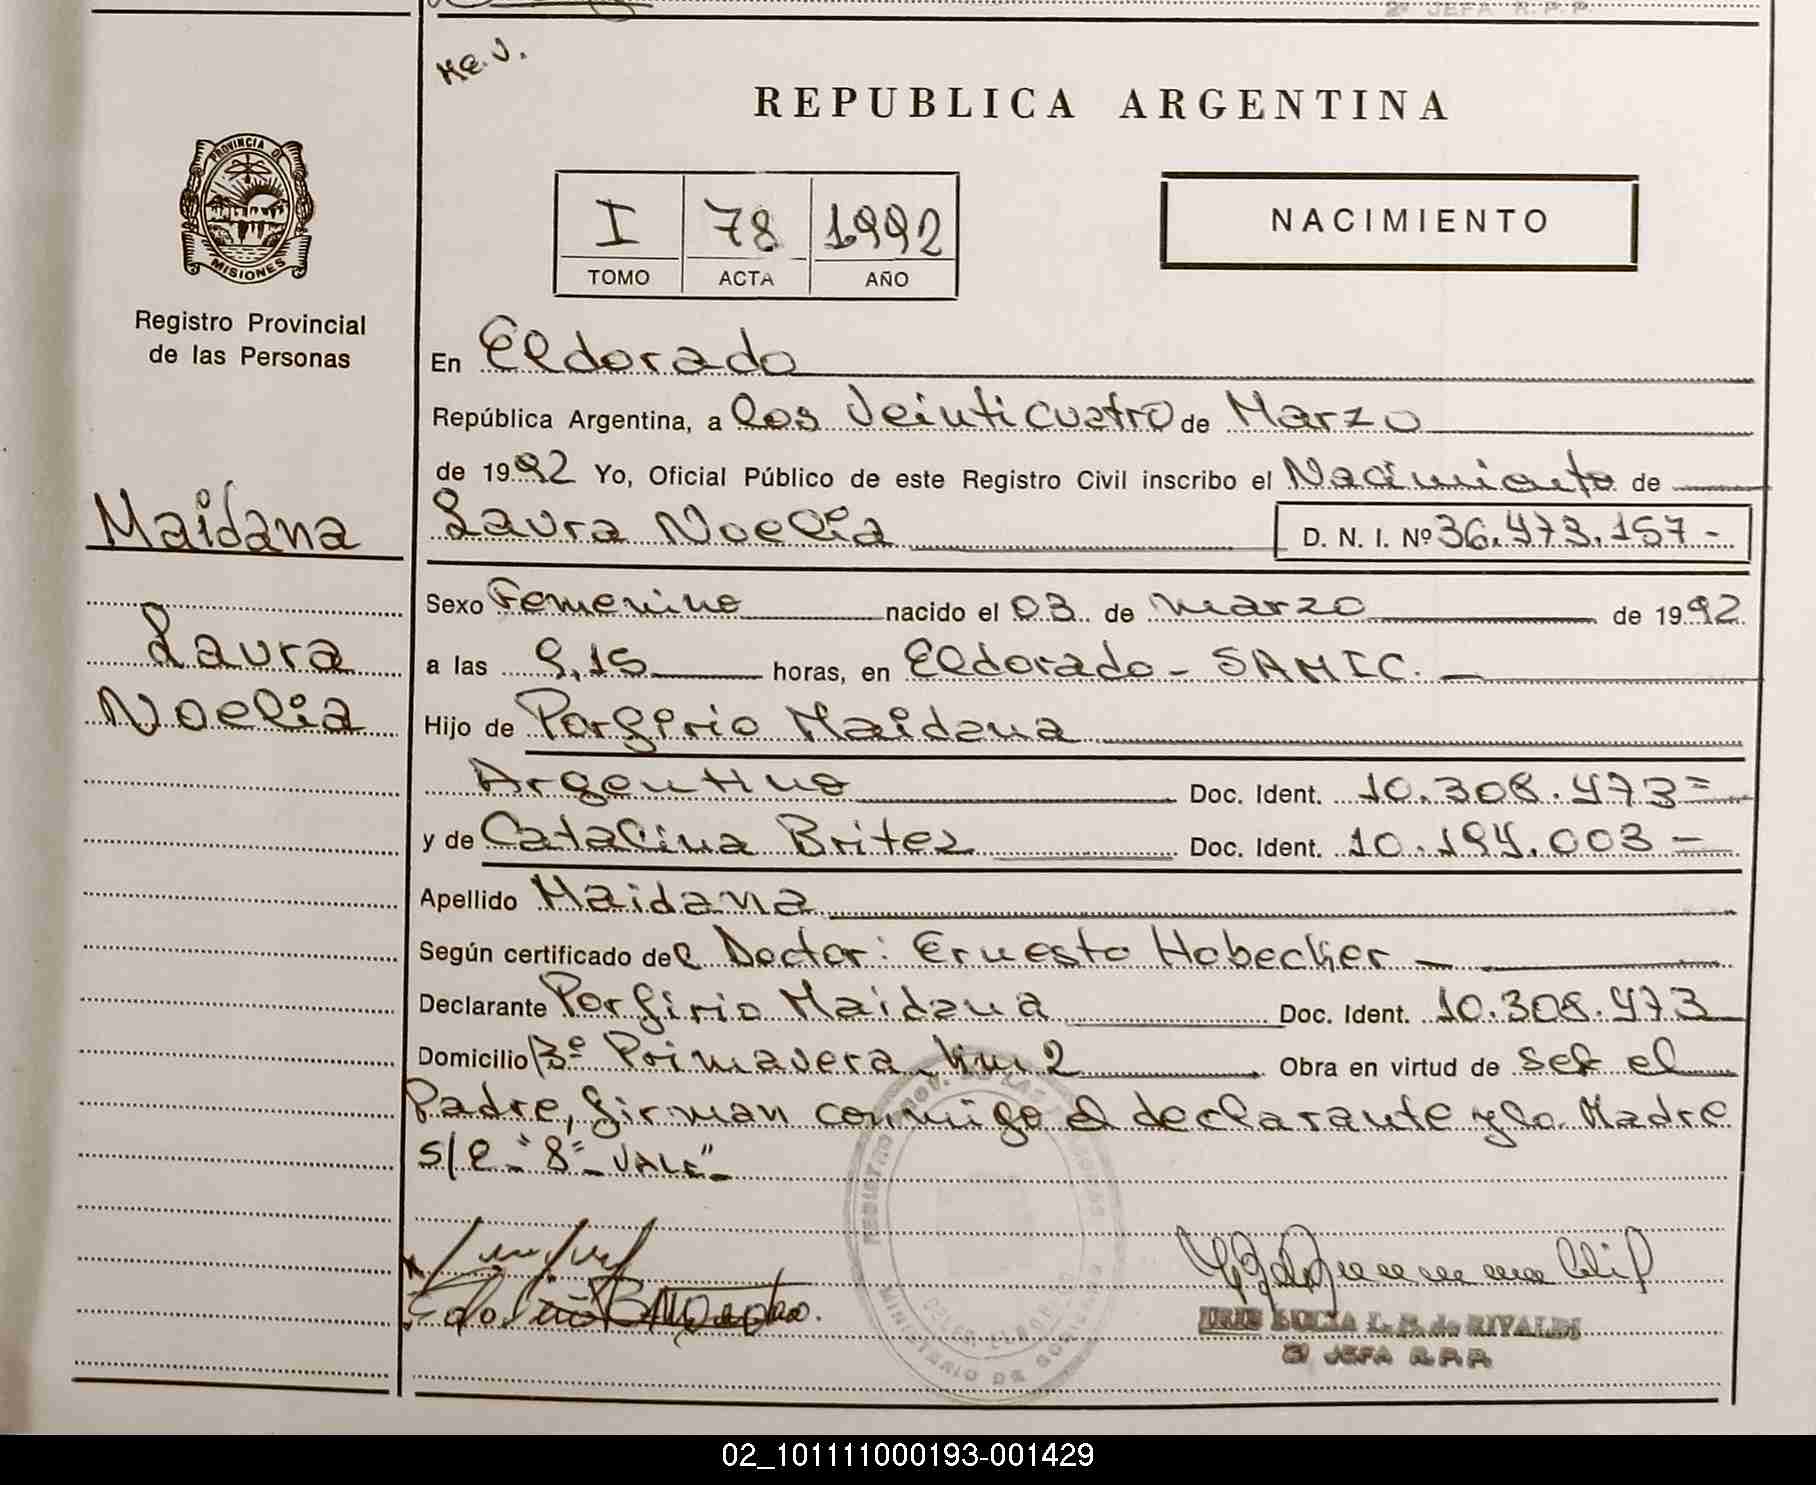 2º JEFA R.P.P.
Me. J.
REPUBLICA ARGENTINA
PROVINCIA DE
MISIONES
I 78 1992
TOMO ACTA AÑO
NACIMIENTO
Registro Provincial
de las Personas
En Eldorado
República Argentina, a los Veinticuatro de Marzo
de 1992 Yo, Oficial Público de este Registro Civil inscribo el Nacimiento de
Maidana
Laura Noelia D. N. I. Nº 36.473.157-
Sexo Femenino nacido el 03 de marzo de 1992
Laura
a las 9,15 horas, en Eldorado - SAMIC. -
Noelia
Hijo de Porfirio Maidana
Argentino Doc. Ident. 10.308.473=
y de Catalina Britez Doc. Ident. 10.194.003 -
Apellido Maidana
Según certificado del Doctor: Ernesto Hobecker -
Declarante Porfirio Maidana Doc. Ident. 10.308.473
Domicilio Bº Primavera km 2 Obra en virtud de ser el
Padre, firman conmigo el declarante y la Madre
S/R "8" - VALE" -
REGISTRO PROV. DE LAS PERSONAS
MINISTERIO DE GOBIERNO
L. B. de RIVALDI
2º JEFA R.P.P.
02_101111000193-001429